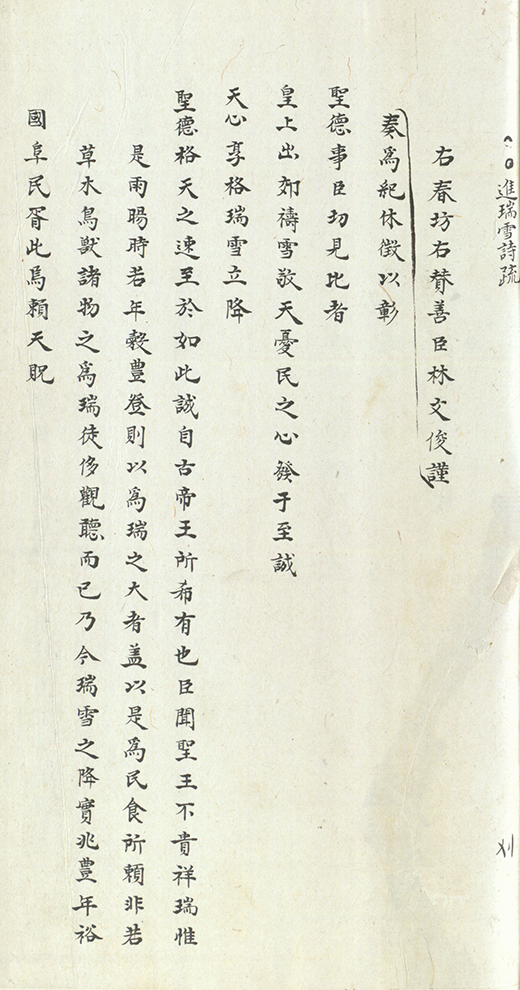 進瑞雪詩疏
右春坊右贊善臣林文俊謹
奏為紀休徵以彰
聖德事臣切見比者
皇上出郊禱雪敬天憂民之心發于至誠
天心享格瑞雪立降
聖德格天之速至於如此誠自古帝王所希有也臣聞聖王不貴祥瑞惟
是雨暘時若年穀豊登則以為瑞之大者蓋以是為民食所頼非若
草木鳥獸諸物之為瑞徒侈觀聽而已乃今瑞雪之降實兆豊年裕
國阜民胥此焉頼天貺
刘